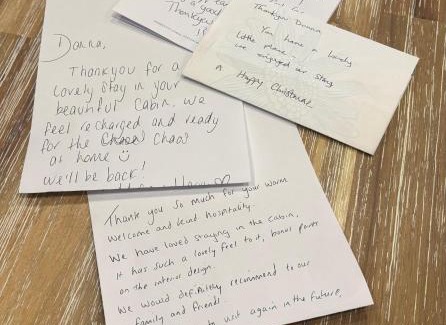 Donna,
Thankyou for a
lovely stay in your
beautiful Cabin. We
feel recharged and ready
for the Chaos Chaos
at home
We'll be back!
a good
Thankyou
Thankyou Donna
You have a lovely
little place
we enjoyed our stay
Happy Christmas
Thank you so much for your warm
welcome and kind hospitality.
We have loved staying in the cabin,
it has such a lovely feel to it, bonus points
on the interior design.
We would definitely recommend to our
family and friends
to visit again in the future,